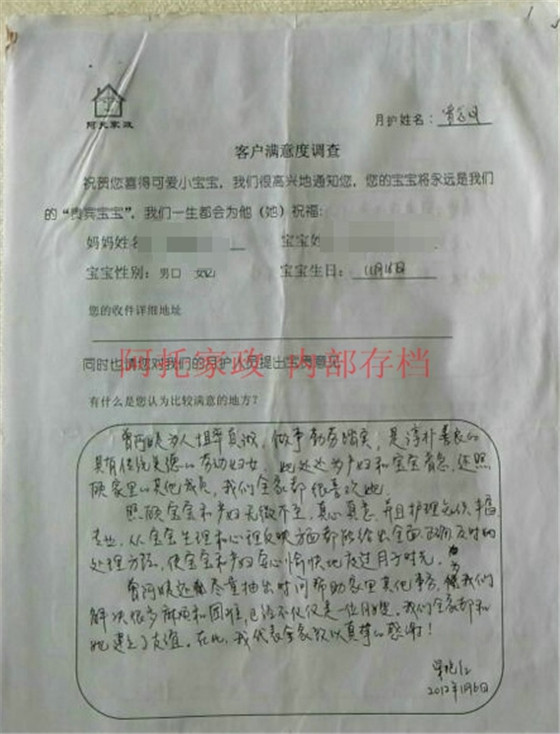 阿托家政
月护姓名：
客户满意度调查
祝贺您喜得可爱小宝宝，我们很高兴地通知您，您的宝宝将永远是我们
的“贵宾宝宝”，我们一生都会为他（她）祝福：
妈妈姓名
宝宝姓
宝宝性别：男口 女
宝宝生日：11月16日
您的收件详细地址
同时也请您对我们的月护人员提出宝贵意见
阿托家政 内部存档
有什么是您认为比较满意的地方？
曾阿姨为人坦率真诚，做事勤劳踏实，是淳朴善良的
具有传统美德的劳动妇女。她处处为产妇和宝宝着想，还照
顾家里的其他成员，我们全家都很喜欢她。
照顾宝宝和产妇无微不至，真心真意，并且护理
专业，从宝宝生理和心理反映方面都能给出全面正确及时的
处理方法，使宝宝和产妇安心愉快地度过月子时光。
曾阿姨还尽量抽出时间帮助家里其他事务，为我们
解决很多麻烦和困难，已经不仅仅是一位月嫂，我们全家都和
她建立了友谊。在此，我代表全家致以真挚的感谢！
2012年1月6日